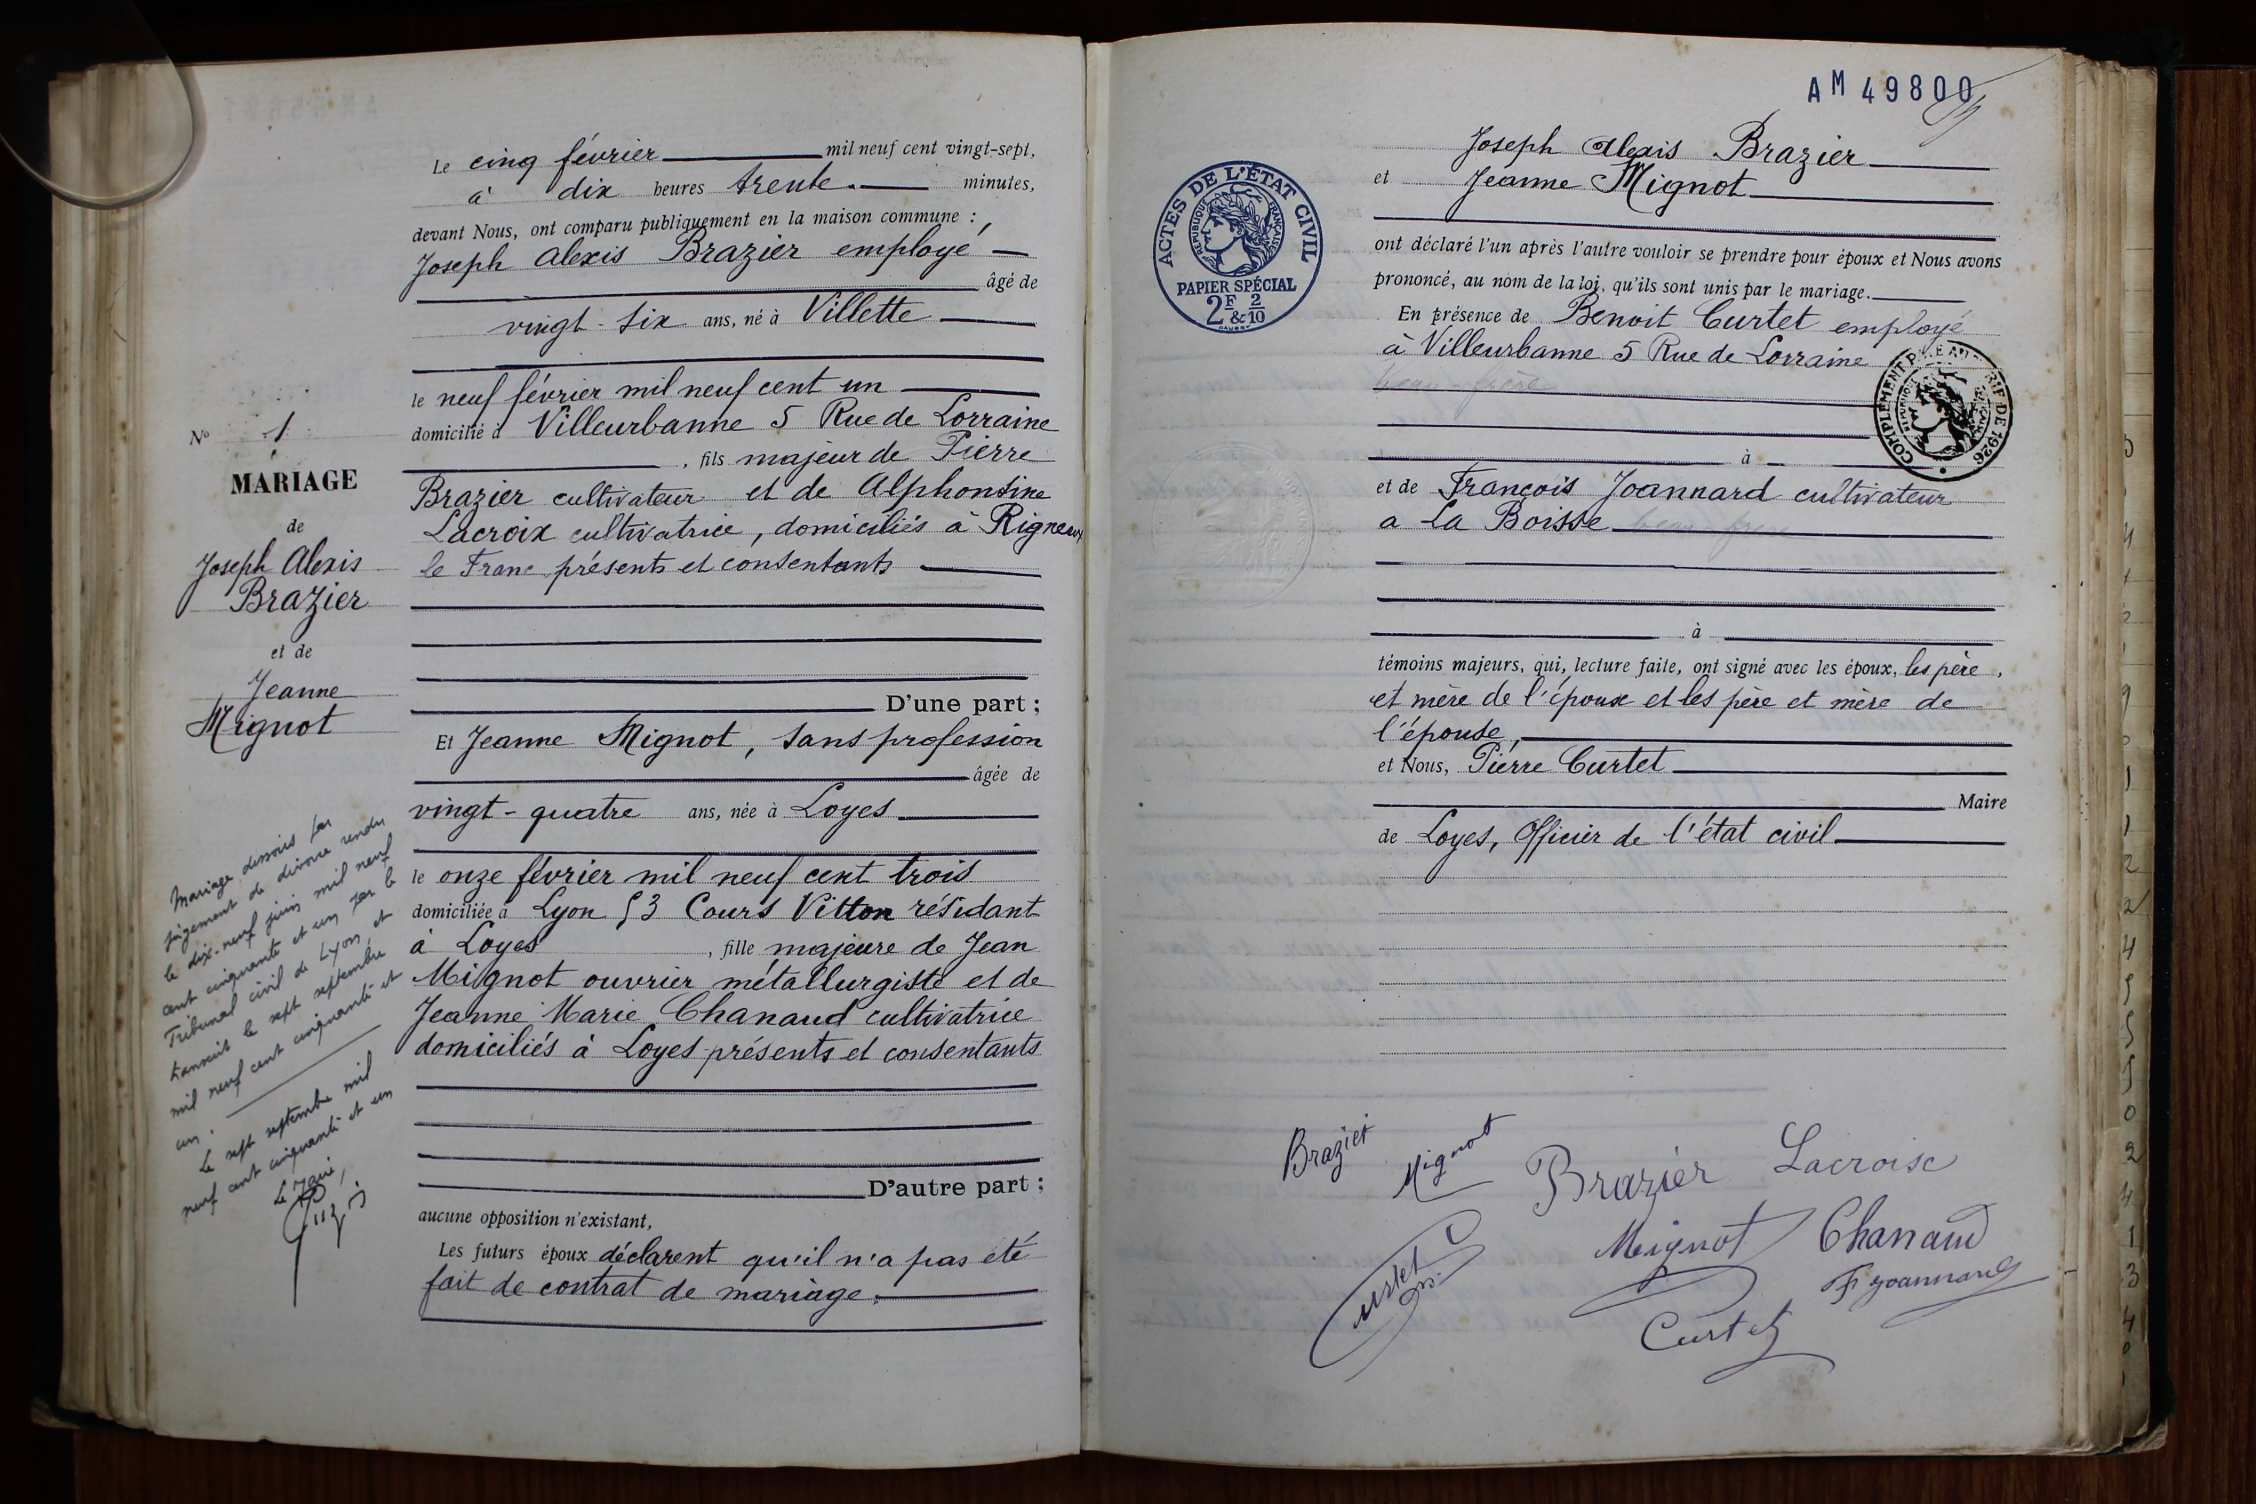 N° 1
MARIAGE
de
Joseph Alexis
Brazier
et de
Jeanne
Mignot
Mariage dissous par
jugement de divorce rendu
le dix-neuf juin mil neuf
cent cinquante et un par le
Tribunal civil de Lyon, et
transcrit le sept septembre
mil neuf cent cinquante et
un.
Le sept septembre mil
neuf cent cinquante et un
Le Maire,
Le cinq février mil neuf cent vingt-sept,
à dix heures trente. minutes,
devant Nous, ont comparu publiquement en la maison commune :
Joseph Alexis Brazier employé
âgé de
vingt-six ans, né à Villette
le neuf février mil neuf cent un
domicilié à Villeurbanne 5 Rue de Lorraine
, fils majeur de Pierre
Brazier cultivateur et de Alphonsine
Lacroix cultivatrice, domiciliés à Rigneux
le Franc présents et consentants
D'une part ;
Et Jeanne Mignot, sans profession
âgée de
vingt-quatre ans, née à Loyes
le onze février mil neuf cent trois
domiciliée à Lyon 53 Cours Vitton résidant
à Loyes , fille majeure de Jean
Mignot ouvrier métallurgiste et de
Jeanne Marie Chanaud cultivatrice
domiciliés à Loyes présents et consentants
D'autre part ;
aucune opposition n'existant,
Les futurs époux déclarent qu'il n'a pas été
fait de contrat de mariage.
AM 49800
ACTES DE L'ÉTAT CIVIL
RÉPUBLIQUE FRANÇAISE
PAPIER SPÉCIAL
2F & 2/10
Joseph Alexis Brazier
et Jeanne Mignot
ont déclaré l'un après l'autre vouloir se prendre pour époux et Nous avons
prononcé, au nom de la loi, qu'ils sont unis par le mariage.
En présence de Benoit Curtet employé
à Villeurbanne 5 Rue de Lorraine
beau-frère
COMPLÉMENT DE 1926
à
et de François Joannard cultivateur
a La Boisse beau frère
à
témoins majeurs, qui, lecture faite, ont signé avec les époux, les père,
et mère de l'époux et les père et mère de
l'épouse,
et Nous, Pierre Curtet
Maire
de Loyes, Officier de l'état civil
Brazier Mignot Brazier Lacroix
Curtet Mignot Chanaud
F Joannard
Curtet